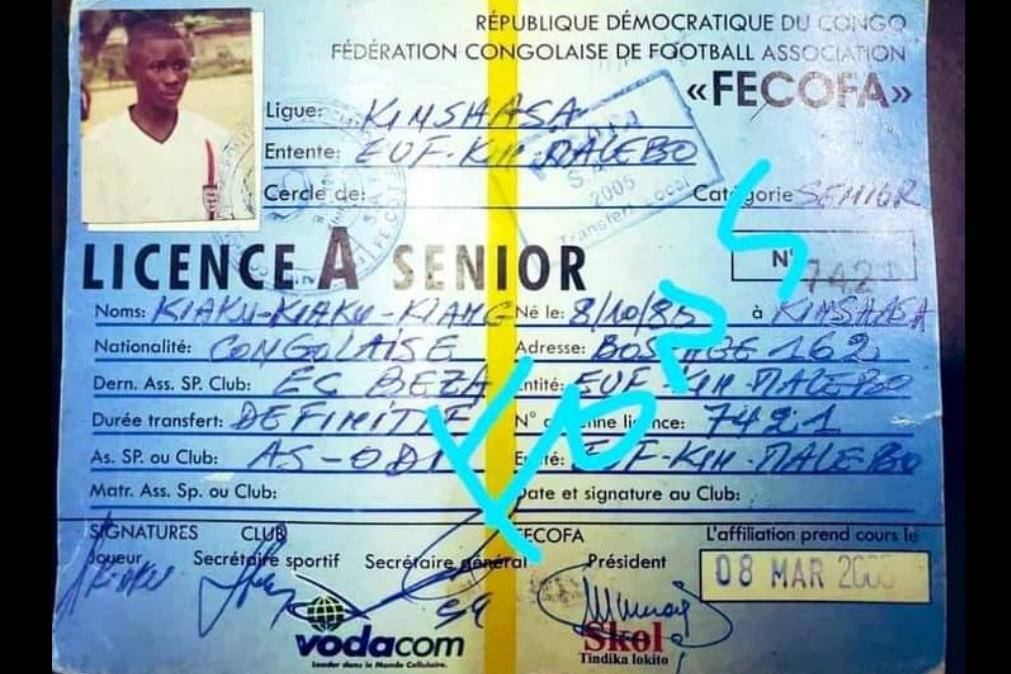 RÉPUBLIQUE DÉMOCRATIQUE DU CONGO
FÉDÉRATION CONGOLAISE DE FOOTBALL ASSOCIATION
«FECOFA»
Ligue: KINSHASA
Entente: EUF-KIN-MALEBO
Cercle de:
Catégorie SENIOR
2005
Transfert Local
LICENCE A SENIOR
N° 7421
Noms: KIAKU-KIAKU-KIANG Né le: 8/10/85 à KINSHASA
Nationalité: CONGOLAISE Adresse: 162
Dern. Ass. SP. Club: ÉC BEZA Entité: EUF-KIN-MALEBO
Durée transfert: DEFINITIF N° licence: 7421
As. SP. ou Club: AS-ODI Entité: EUF-KIN-MALEBO
Matr. Ass. Sp. ou Club: Date et signature au Club:
SIGNATURES CLUB FECOFA L'affiliation prend cours le
Joueur Secrétaire sportif Secrétaire général Président
08 MAR
vodacom
Leader dans le Monde Cellulaire.
Skol
Tindika lokito